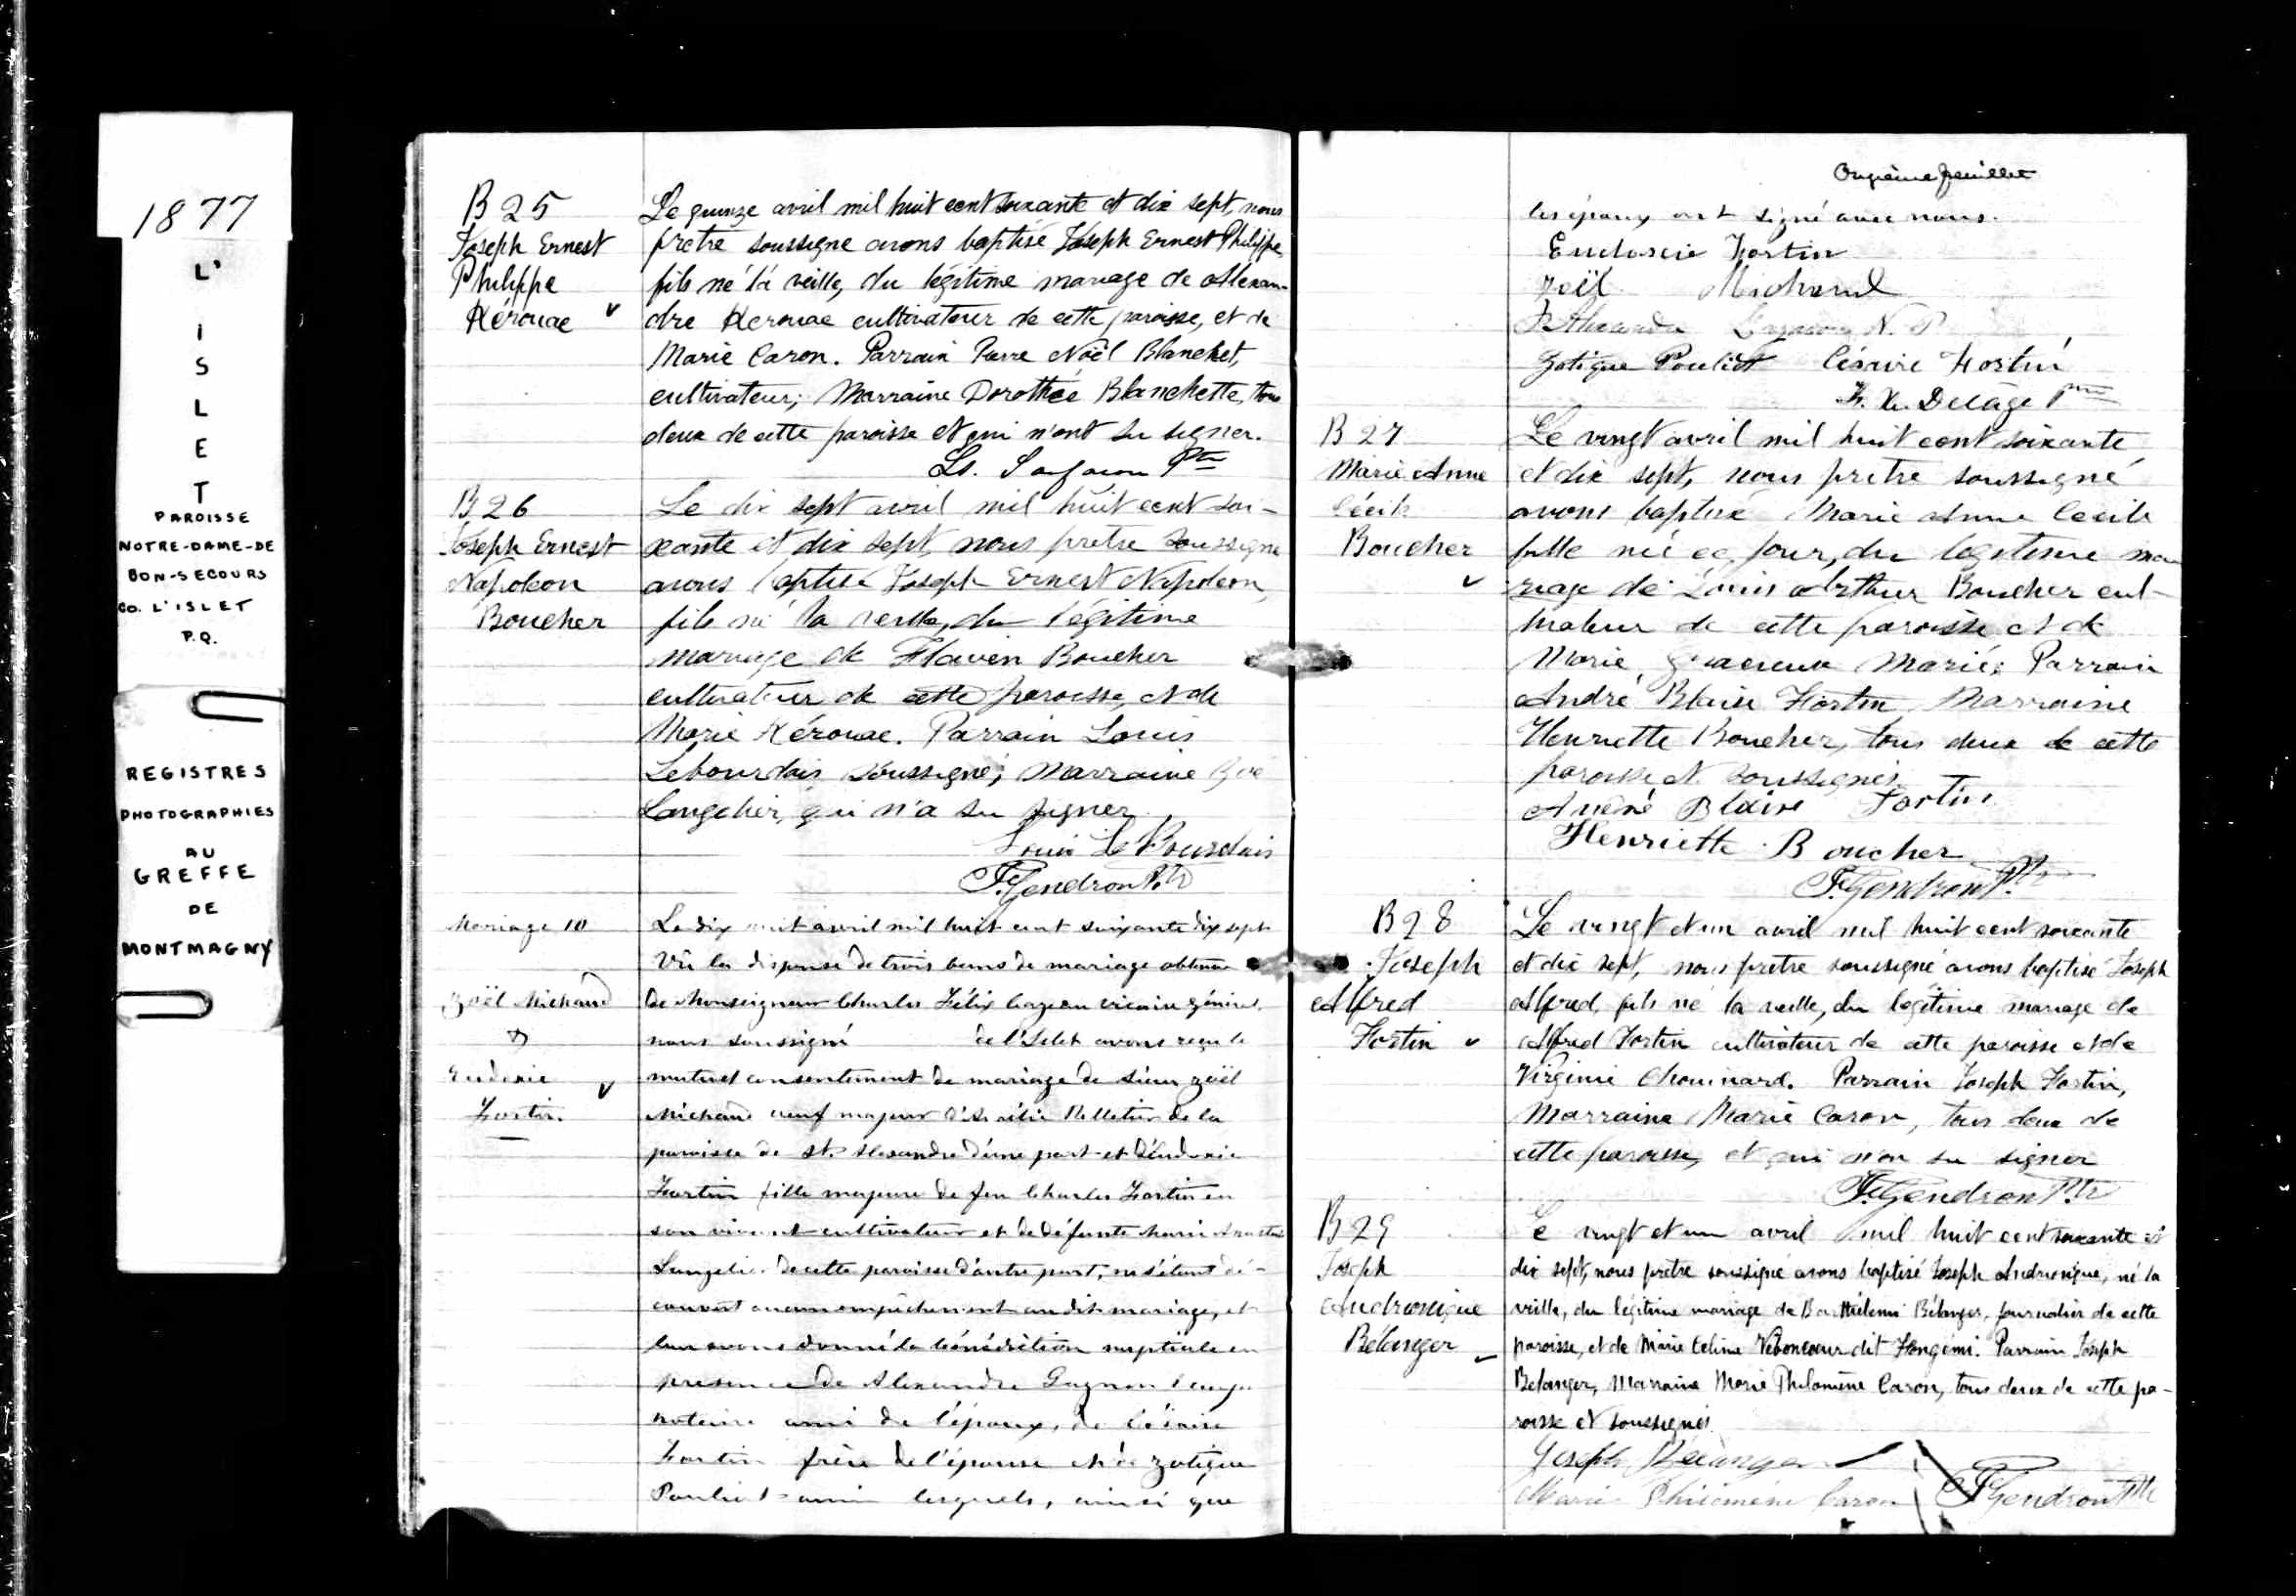 1877
L'
I
S
L
E
T
PAROISSE
NOTRE-DAME-DE
BON-SECOURS
Co. L'ISLET
P.Q.
REGISTRES
PHOTOGRAPHIES
AU
GREFFE
DE
MONTMAGNY
B 25
Joseph Ernest
Philippe
Kérouac
Le quinze avril mil huit cent soixante et dix sept, nous
pretre soussigne avons baptisé Joseph Ernest Philippe
fils né la veille, du légitime mariage de Alexan-
dre Kerouac cultivateur de cette paroisse, et de
Marie Caron. Parrain Pierre Noël Blanchet,
cultivateur; Marraine Dorothée Blanchette, tous
deux de cette paroisse et qui n'ont su signer.
Ls. Ptre
B 26
Joseph Ernest
Napoleon
Boucher
Le dix sept avril mil huit cent soi-
xante et dix sept, nous pretre soussigne
avons baptisé Joseph Ernest Napoleon,
fils né la veille, du légitime
mariage de Flavien Boucher
cultivateur de cette paroisse, et de
Marie Kérouac. Parrain Louis
Lebourdais soussigné; Marraine
Langelier, qui n'a su signer
Louis Le Bourdais
F. Gendron Ptr
Mariage 10
Zoël Michaud
&
Eudoxie
Fortin
Le dix huit avril mil huit cent soixante dix sept
Vû la dispense de trois bans de mariage obtenue
de Monseigneur Charles Félix Cazeau vicaire général
nous soussigné de l'Islet avons reçu le
mutuel consentement de mariage de Sieur Zoël
Michaud veuf majeur Pelletier de la
paroisse de St. Alexandre d'une part et d'Eudoxie
Fortin fille majeure de feu Charles Fortin en
son vivant cultivateur et de défunte Marie
Langelier de cette paroisse d'autre part, ne s'étant dé-
couvert aucun empêchement au dit mariage, et
leur avons donné la bénédiction nuptiale en
presence de Alexandre Gagnon
notaire ami de l'époux, de Césaire
Fortin frère de l'épouse et de Zotique
Pouliot ami lesquels, ainsi que
Onzième feuillet
les époux ont signé avec nous.
Eudoxie Fortin
Zoël Michaud
N. P.
Zotique Pouliot Césaire Fortin
F. X. Delâge Ptre
B 27
Marie Anne
Cécile
Boucher
Le vingt avril mil huit cent soixante
et dix sept, nous pretre soussigné
avons baptisé Marie Anne Cecile
fille née ce jour, du legitime ma
riage de Louis Arthur Boucher cul-
tivateur de cette paroisse et de
Marie Marié; Parrain
André Blaise Fortin Marraine
Henriette Boucher, tous deux de cette
paroisse et soussignés.
André Blaise Fortin
Henriette Boucher
F. Gendron Ptr
B 28
Joseph
Alfred
Fortin
Le vingt et un avril mil huit cent soixante
et dix sept, nous pretre soussigné avons baptisé Joseph
Alfred, fils né la veille, du legitime mariage de
Alfred Fortin cultivateur de cette paroisse et de
Virginie Chouinard. Parrain Joseph Fortin,
Marraine Marie Caron, tous deux de
cette paroisse, et qui n'on su signer
F. Gendron Ptr
B 29
Joseph
Andronique
Bélanger
Le vingt et un avril mil huit cent soixante et
dix sept, nous prêtre soussigné avons baptisé Joseph Andronique, né la
veille, du légitime mariage de Barthélemi Bélanger, journalier de cette
paroisse, et de Marie Celina Veboncoeur dit Fongémi. Parrain Joseph
Belanger, Marraine Marie Philomène Caron, tous deux de cette pa-
roisse et soussignés.
Joseph Bélanger
Marie Philomène Caron F. Gendron Ptr